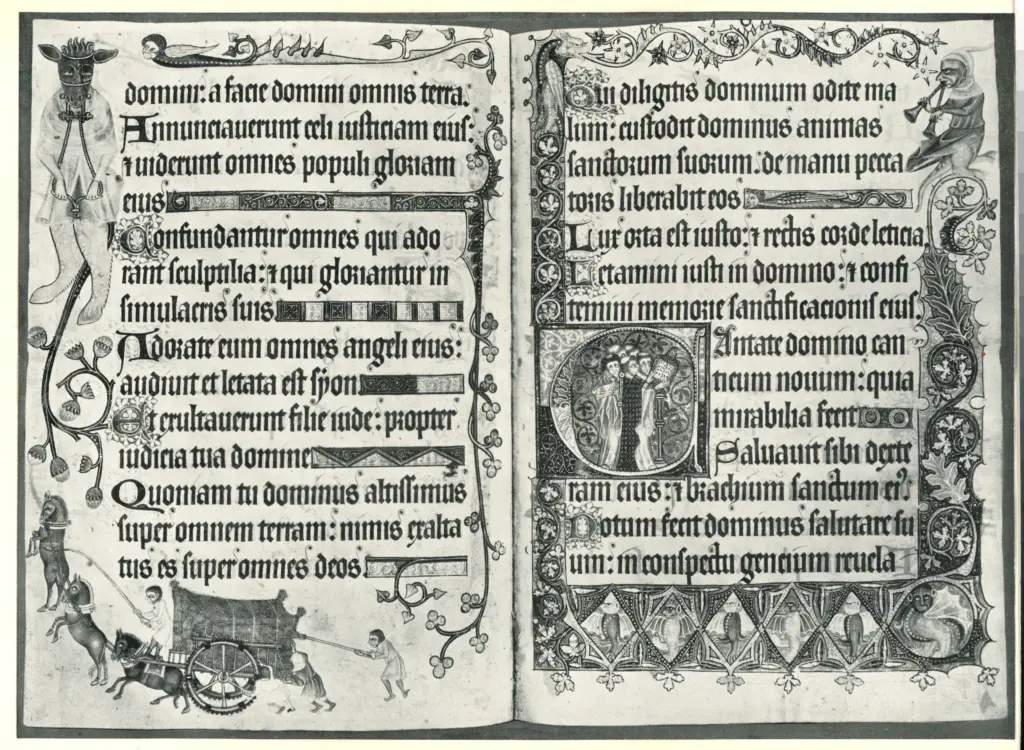 domini: a facie domini omnis terra.
Annunciaverunt celi iusticiam eius:
⁊ viderunt omnes populi gloriam
eius
Confundantur omnes qui ado
rant sculptilia: ⁊ qui gloriantur in
simulacris suis
Adorate eum omnes angeli eius:
audiuit et letata est syon
Et exultaverunt filie iude: propter
iudicia tua domine
Quoniam tu dominus altissimus
super omnem terram: nimis exalta
tus es super omnes deos.
Qui diligitis dominum odite ma
lum: custodit dominus animas
sanctorum suorum: de manu pecca
toris liberabit eos
Lux orta est iusto: ⁊ rectis corde leticia
Letamini iusti in domino: ⁊ confi
temini memorie sanctificacionis eius.
Cantate domino can
ticum nouum: quia
mirabilia fecit
Saluauit sibi dexte
ram eius: ⁊ brachium sanctum ei⁹.
Notum fecit dominus salutare su
um: in conspectu gencium reuela